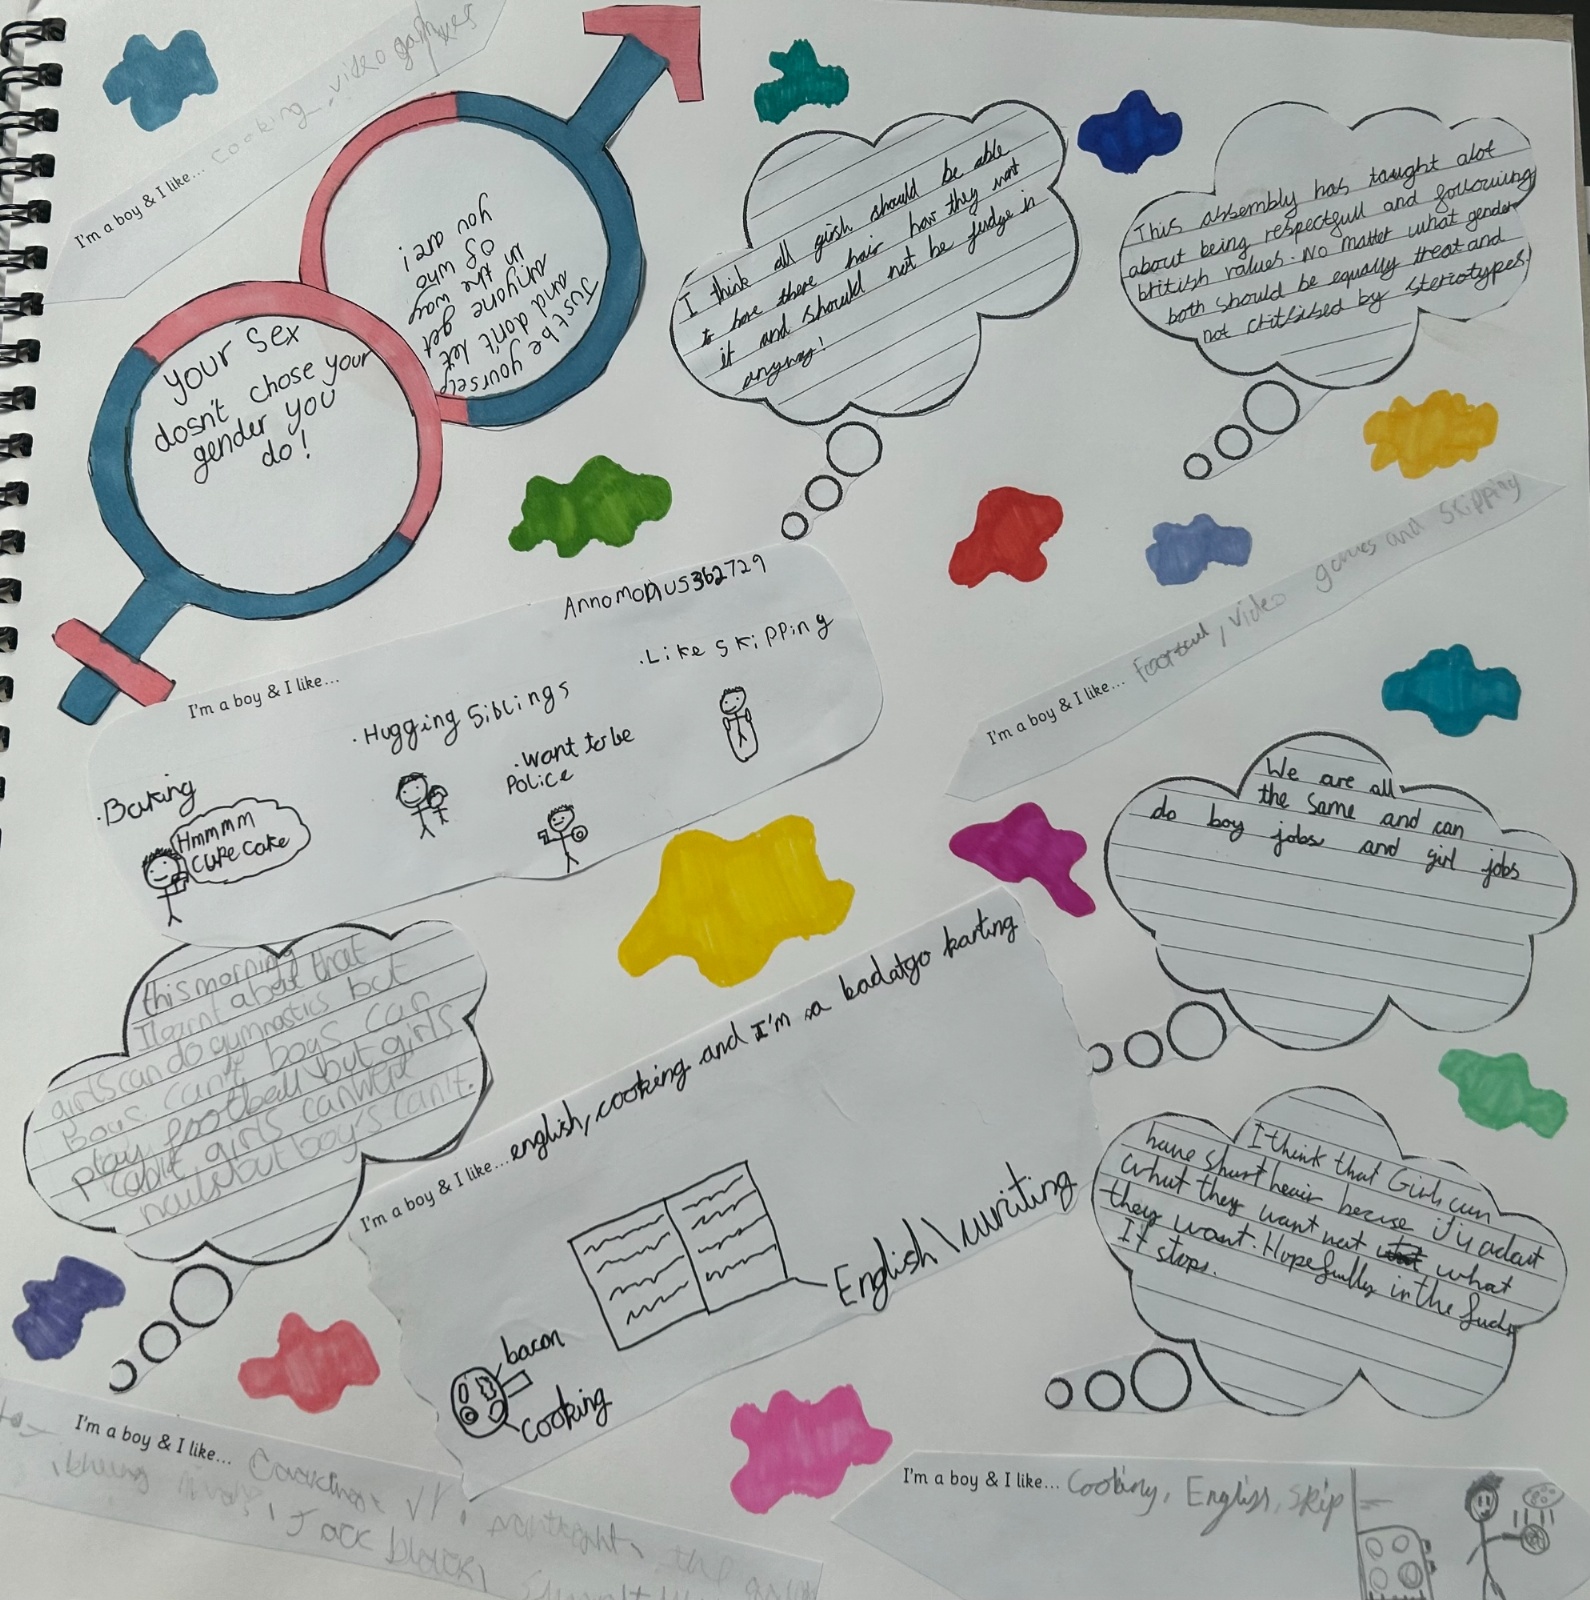 I'm a boy & I like... cooking, video games
Just be
yourself
and don't let
anyone get
in the way
of who
you are!
your sex
dosn't chose your
gender you
do!
I think all girsh should be able
to have there hair how they want
it and should not be judge in
anyway!
This assembly has taught alot
about being respectfull and following
british values. No matter what gender
both should be equally treat and
not by steriotypes.
Annomonus362729
I'm a boy & I like...
.Baking
Hmmmm
CUPE CaKe
.Hugging Siblings
.Want to be
Police
.Like Skipping
I'm a boy & I like... video games and skipping
We are all
the same and can
do boy jobs and girl jobs
this morning
I learnt about that
girls can do gymnastics but
Boys can't boys can
play football but girls
cant girls can
nails but boys can't.
I'm a boy & I like... english, cooking and I'm a bad at go karting
English\writing
bacon
cooking
I think that Girls can
have short heair becuse it's adout
what they want not what
they want. Hopefully in the
It stops.
I'm a boy & I like...
Jack black,
I'm a boy & I like... Cooking, English, skip